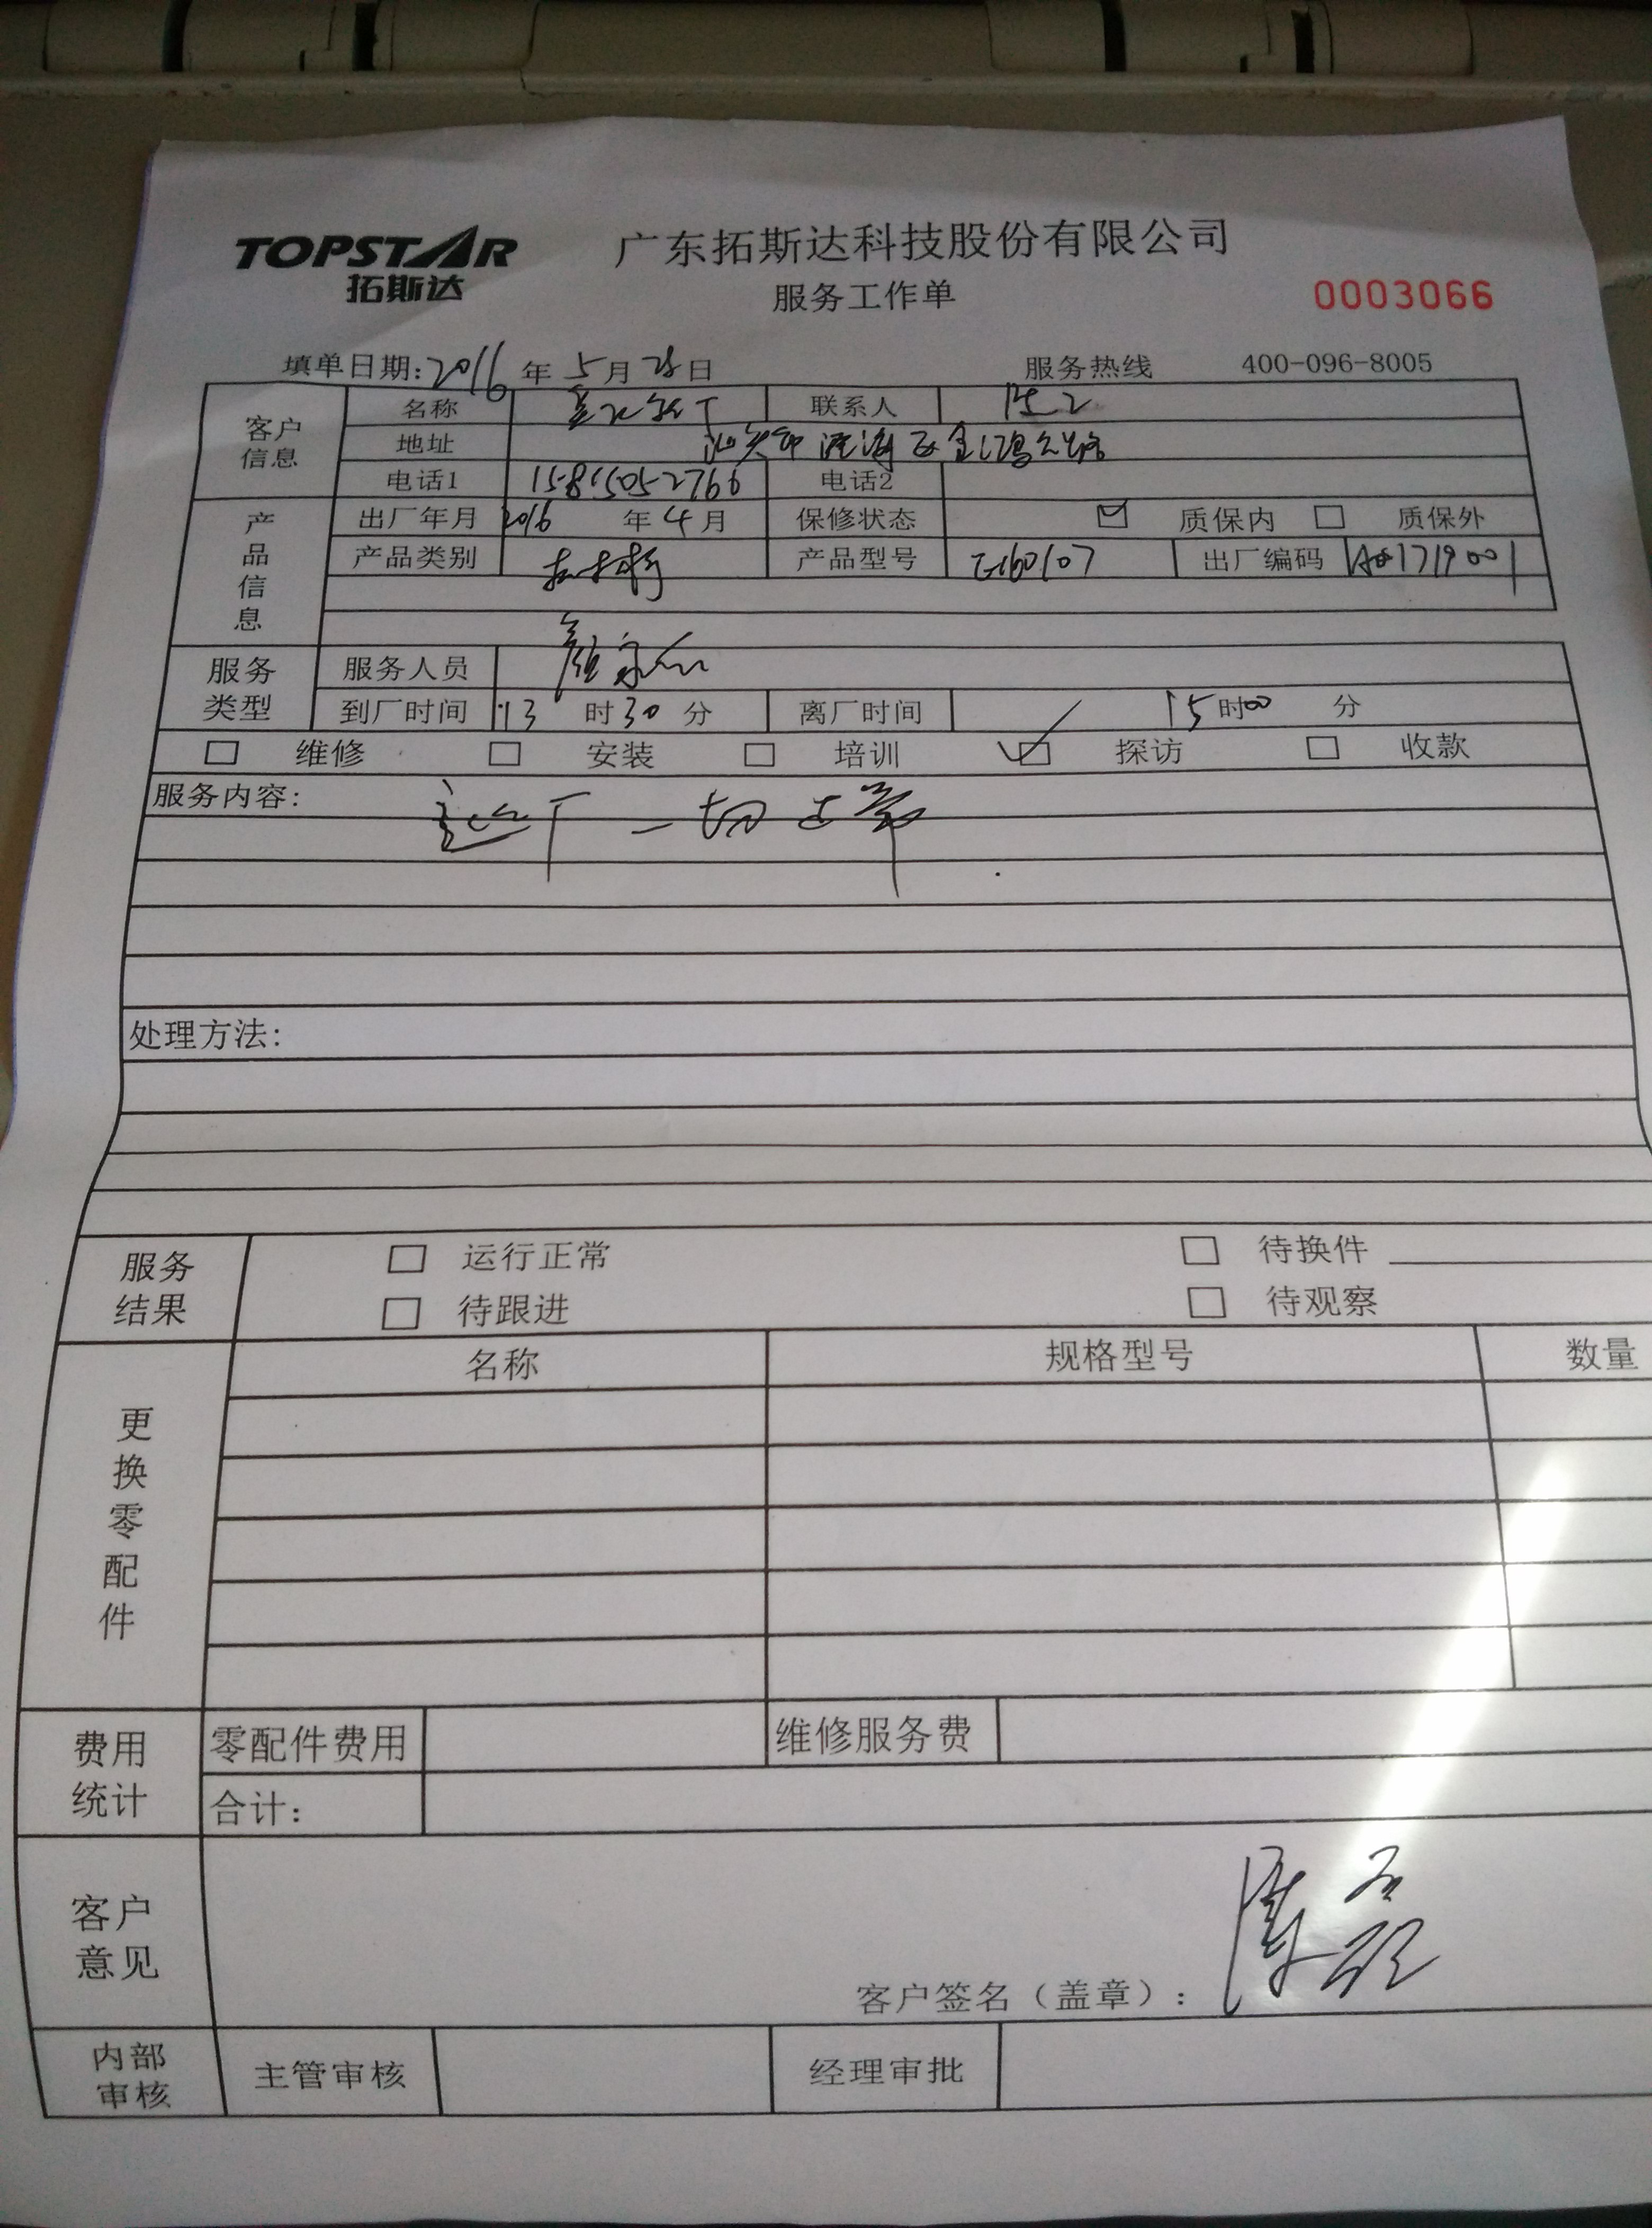 TOPSTAR
拓斯达
广东拓斯达科技股份有限公司
服务工作单
0003066
填单日期: 2016 年 5 月 日
服务热线 400-096-8005
客户信息
名称
联系人 陈工
地址 汕头市澄海区金鸿公路
电话1 15815052766
电话2
产品信息
出厂年月 2016 年 4 月
保修状态 ☑ 质保内 □ 质保外
产品类别 机械手
产品型号
出厂编码
服务类型
服务人员
到厂时间 13 时 30 分
离厂时间 15 时 00 分
□ 维修 □ 安装 □ 培训 ☑ 探访 □ 收款
服务内容: 巡厂一切正常
处理方法:
服务结果
□ 运行正常 □ 待换件
□ 待跟进 □ 待观察
更换零配件
名称 规格型号 数量
费用统计
零配件费用 维修服务费
合计:
客户意见
客户签名(盖章):
内部审核
主管审核 经理审批